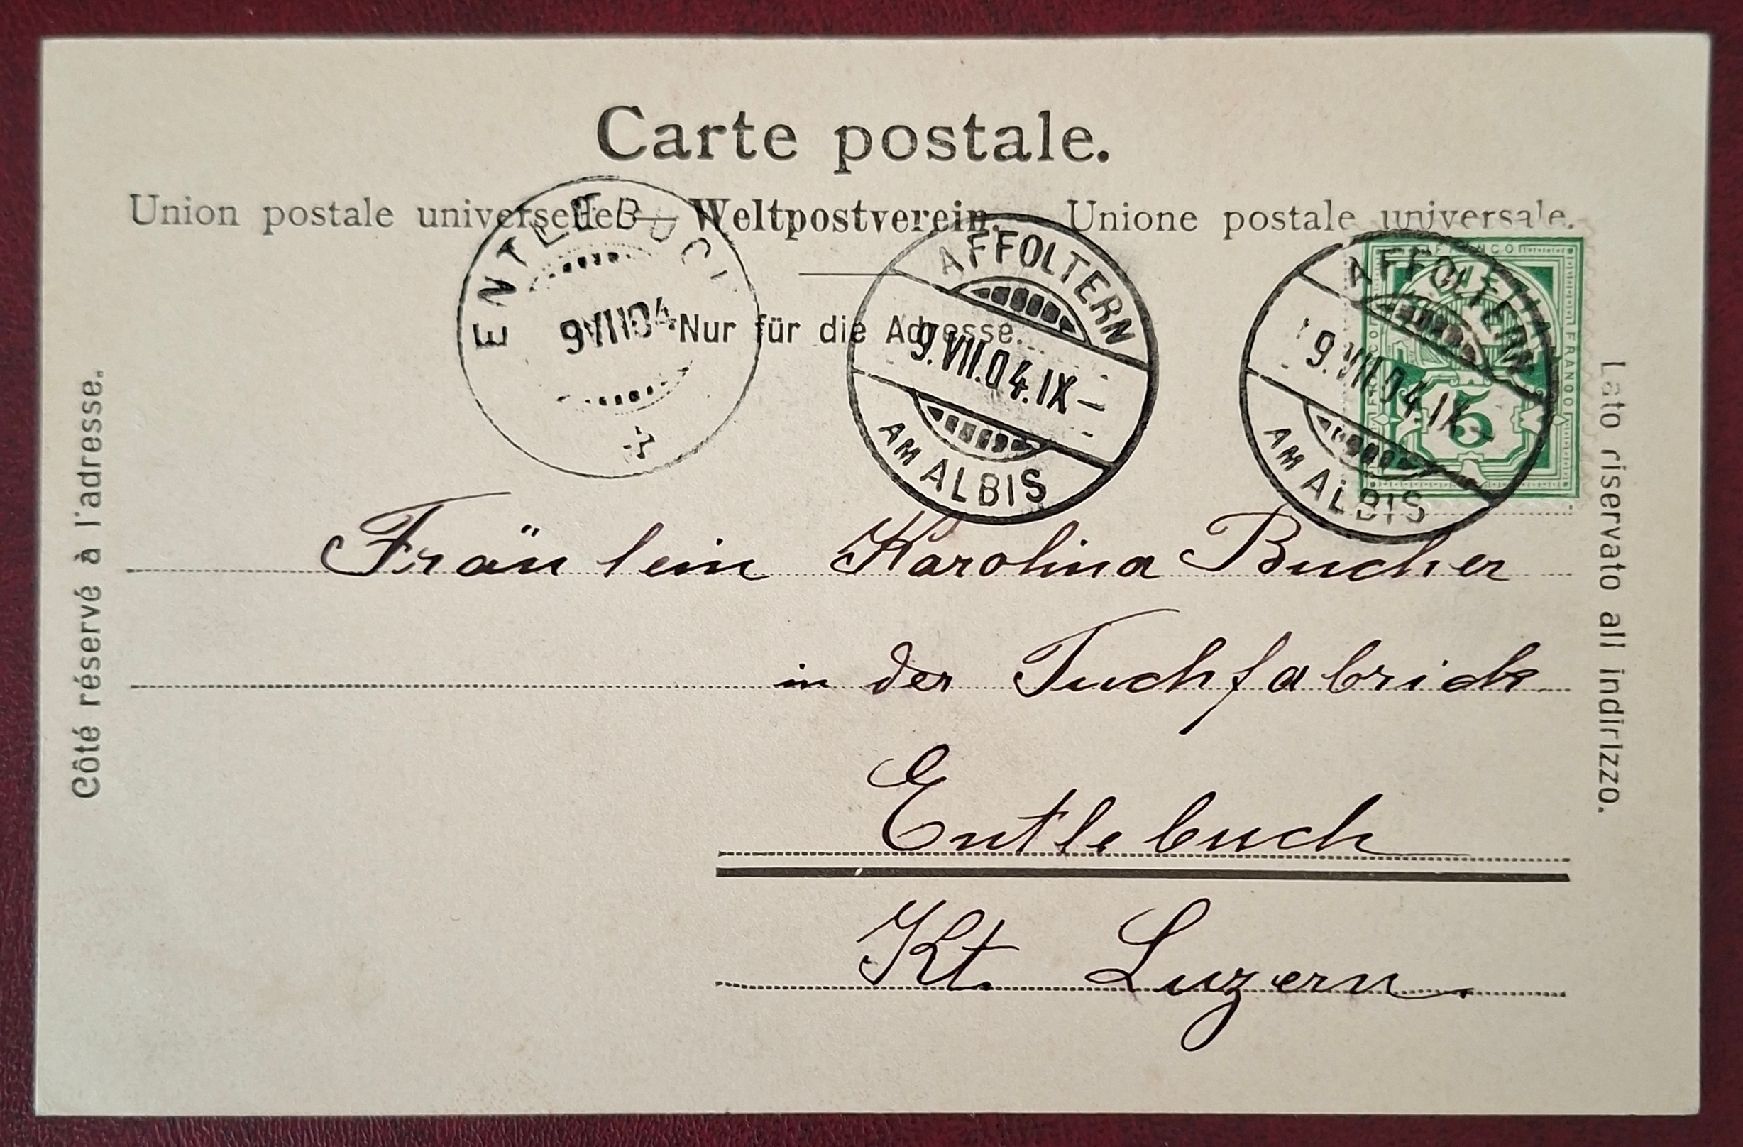 Carte postale.
Union postale universelle — Weltpostverein. Unione postale universale.
Nur für die Adresse.
Côté réservé à l'adresse.
Lato riservato all indirizzo.
ENTLEBUCH
9 VII 04
AFFOLTERN
9.VII.04.IX–
AM ALBIS
AFFOLTERN
9.VII.04.IX–
AM ALBIS
FRANCO
5
Fräulein Karolina Bucher
in der Tuchfabrick
Entlebuch
Kt. Luzern.